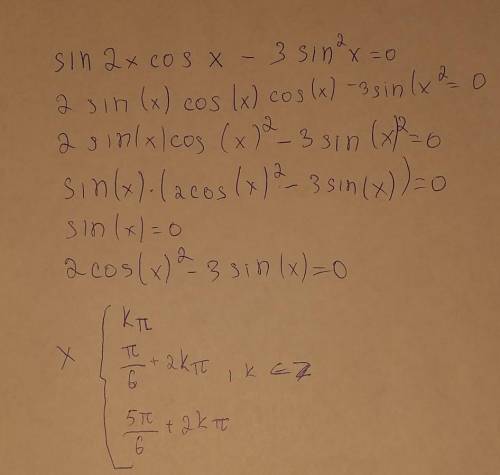 sin 2x cos x − 3 sin² x = 0
2 sin(x) cos(x) cos(x) − 3 sin(x² = 0
2 sin(x) cos (x)² − 3 sin (x)² = 0
sin(x)·(2cos(x)² − 3sin(x)) = 0
sin(x) = 0
2cos(x)² − 3 sin(x) = 0
kπ
x { π/6 + 2kπ , k ∈ Z
5π/6 + 2kπ